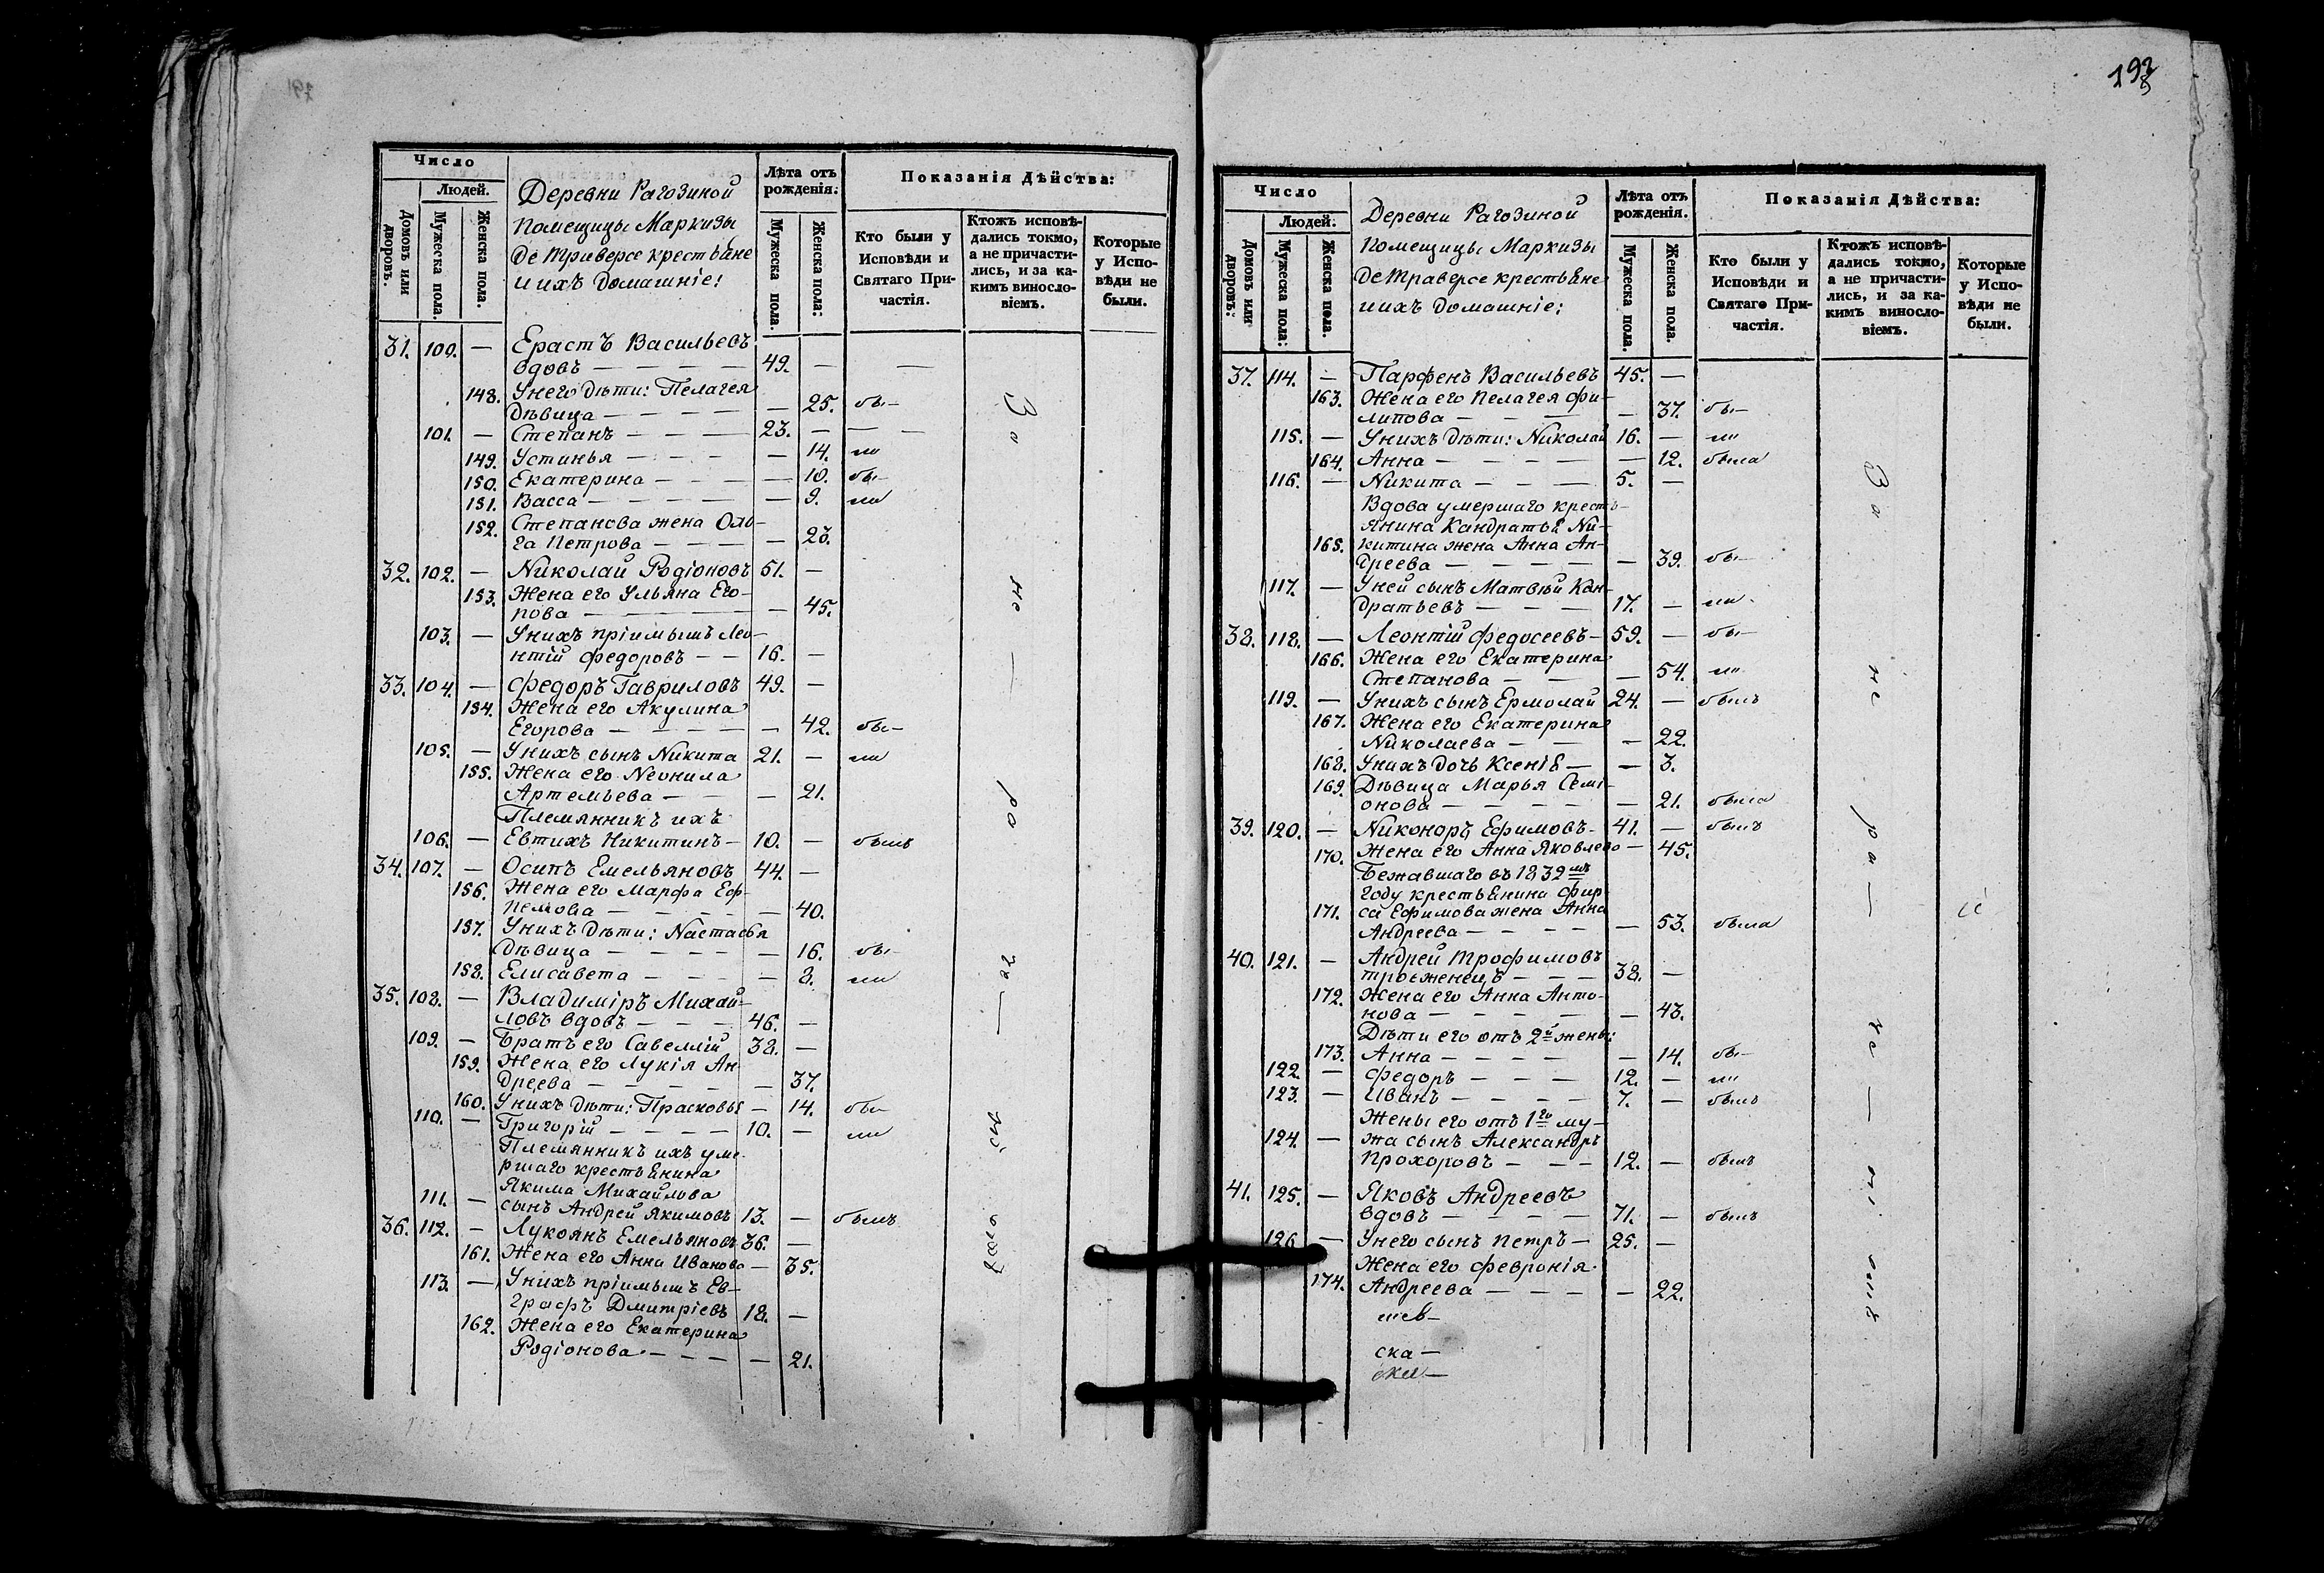 Число
Людей.
Домовъ или дворовъ.
Мужеска пола.
Женска пола.
Деревни Рагозиной
помещицы Маркизы
де Траверсе крестьяне
и ихъ домашніе:
Лѣта отъ рожденія:
Мужеска пола
Женска пола:
Показанія Дѣйства:
Кто были у Исповѣди и Святаго Причастія.
Ктожъ исповѣдались токмо, а не причастились, и за какимъ винословіемъ.
Которые у Исповѣди не были.
31. 100. — Ерастъ Васильевъ
вдовъ — 49. — —
148. У него дѣти: Пелагея
дѣвица — — 25. бы—
101. — Степанъ — 23. — —
149. Устинья — — 14. ли
150. Екатерина — — 10. бы—
151. Васса — — 9. ли
152. Степанова жена Оль-
га Петрова — — 23.
32. 102. — Николай Родіоновъ 51. —
153. Жена его Ульяна Его-
рова — — 45.
103. — У нихъ пріимышъ Лео-
нтій Федоровъ — 16. —
33. 104. — Федоръ Гавриловъ 49. —
154. Жена его Акулина
Егорова — — 42. бы—
105. — У нихъ сынъ Никита 21. — ли
155. Жена его Неонила
Артемьева — — 21.
Племянникъ ихъ
106. — Евтихъ Никитинъ — 10. — былъ
34. 107. — Осипъ Емельяновъ 44. —
156. Жена его Марфа Еф-
— 40.
157. У нихъ дѣти: Настасья
дѣвица — — 16. бы—
158. Елисавета — — 8. ли
35. 108. — Владиміръ Михай-
ловъ вдовъ — 46. —
109. — Братъ его Савеллій 38. —
159. Жена его Лукія Ан-
дреева — — 37.
160. У нихъ дѣти: Прасковья — 14. бы—
110. — Григорій — 10. — ли
Племянникъ ихъ уме-
ршаго крестьянина
Якима Михайлова
111. — сынъ Андрей Якимовъ 13. — былъ
36. 112. — Лукоянъ Емельяновъ 36. —
161. Жена его Анна Иванова — 35.
113. — У нихъ пріимышъ Ев-
графъ Дмитріевъ 18. —
162. Жена его Екатерина
Родіонова — — 21.
За не— ра че—
193
Число
Людей.
Домовъ или дворовъ:
Мужеска пола:
Женска пола.
Деревни Рагозиной
помещицы Маркизы
де Траверсе крестьяне
и ихъ домашніе:
Лѣта отъ рожденія.
Мужеска пола.
Женска пола.
Показанія Дѣйства:
Кто были у Исповѣди и Святаго Причастія.
Ктожъ исповѣдались токмо, а не причастились, и за какимъ винословіемъ.
Которые у Исповѣди не были.
37. 114. — Парфенъ Васильевъ 45. —
163. Жена его Пелагея Фи-
липова — — 37. бы—
115. — У нихъ дѣти: Николай 16. — ли
164. Анна — — 12. была
116. — Никита — 5. —
Вдова умершаго кресть-
янина Кандратья Ни-
165. китина жена Анна Ан-
дреева — — 39. бы—
117. — У ней сынъ Матвѣй Кан-
дратьевъ — 17. — ли
38. 118. — Леонтій Федосеевъ — 59. — бы—
166. Жена его Екатерина
Степанова — — 54. ли
119. — У нихъ сынъ Ермолай 24. — былъ
167. Жена его Екатерина
Николаева — — 22.
168. У нихъ дочь Ксенія — — 3.
169. Дѣвица Марья Семі-
онова — — 21. была
39. 120. — Никоноръ Ефимовъ — 41. — былъ
170. Жена его Анна Яковлева — 45.
Бежавшаго въ 1839мъ
году крестьянина Фир-
171. са Ефимова жена Анна
Андреева — — 53. была
40. 121. — Андрей Трофимовъ
троеженецъ — 38. —
172. Жена его Анна Анто-
нова — — 43.
Дѣти его отъ 2й жены:
173. Анна — — 14. бы—
122. — Федоръ — 12. — ли
123. — Иванъ — 7. — былъ
Жены его отъ 1го му-
124. — жа сынъ Александръ
Прохоровъ — 12. — былъ
41. 125. — Яковъ Андреевъ
вдовъ — 71. — былъ
126. — У него сынъ Петръ — 25. —
Жена его Февронія
174. Андреева — — 22.
ска —
За не ра— че—